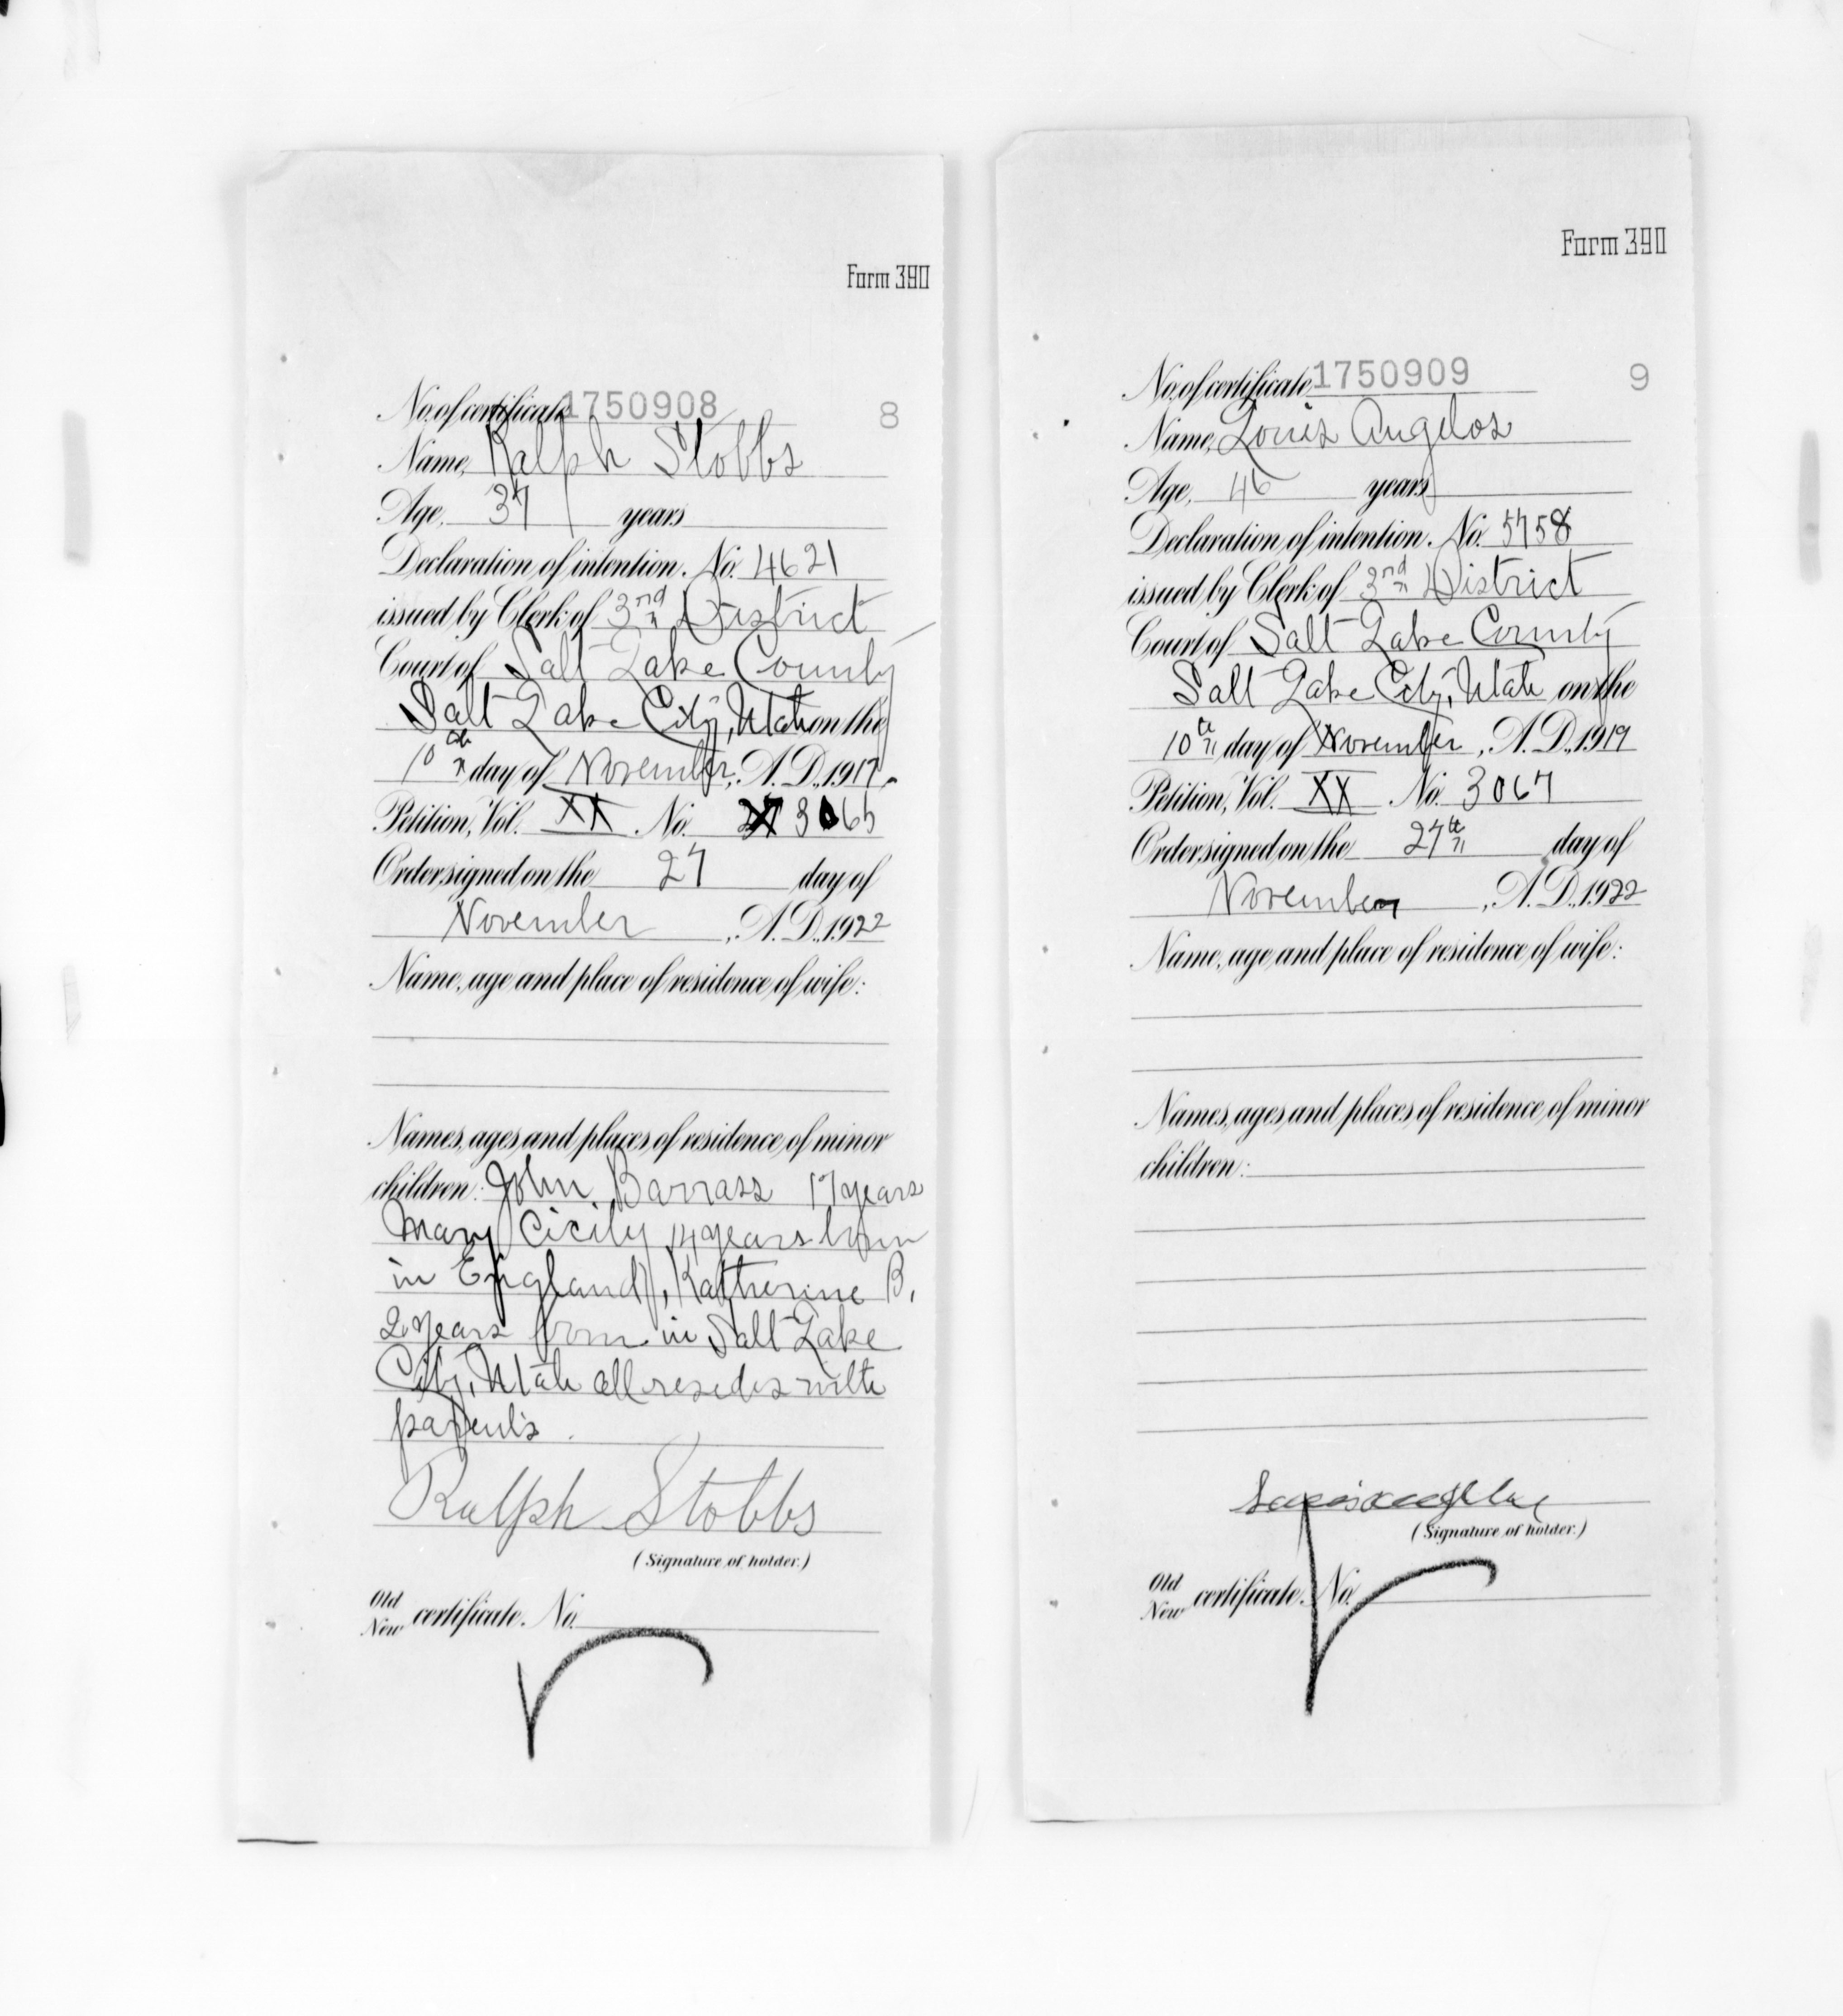 Form 390
No. of certificate 1750908 8
Name, Ralph Stobbs
Age, 37 years
Declaration of intention. No. 4621
issued by Clerk of 3rd District
Court of Salt Lake County
Salt Lake City, Utah on the
10th day of November, A. D., 1917
Petition, Vol. XX No. 3065
Order signed on the 27 day of
November, A. D., 1922
Name, age and place of residence of wife:
Names, ages and places of residence of minor
children: John Barrass 17 years
Mary Cicily 14 years born
in England, Katherine B,
2 years born in Salt Lake
City, Utah all resides with
parents.
Ralph Stobbs
(Signature of holder.)
Old
New certificate. No.
Form 390
No. of certificate 1750909 9
Name, Louis Angelos
Age, 46 years
Declaration of intention. No. 5758
issued by Clerk of 3rd District
Court of Salt Lake County
Salt Lake City, Utah on the
10th day of November, A. D., 1919
Petition, Vol. XX No. 3067
Order signed on the 27th day of
November, A. D., 1922
Name, age and place of residence of wife:
Names, ages and places of residence of minor
children:
(Signature of holder.)
Old
New certificate. No.